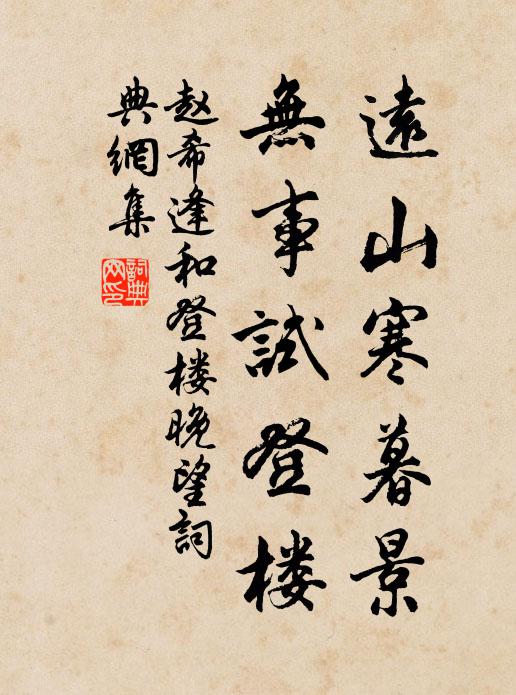 遠山寒暮景
無事試登楼
赵希逢和登楼晚望詞
典網集
詞典
网印